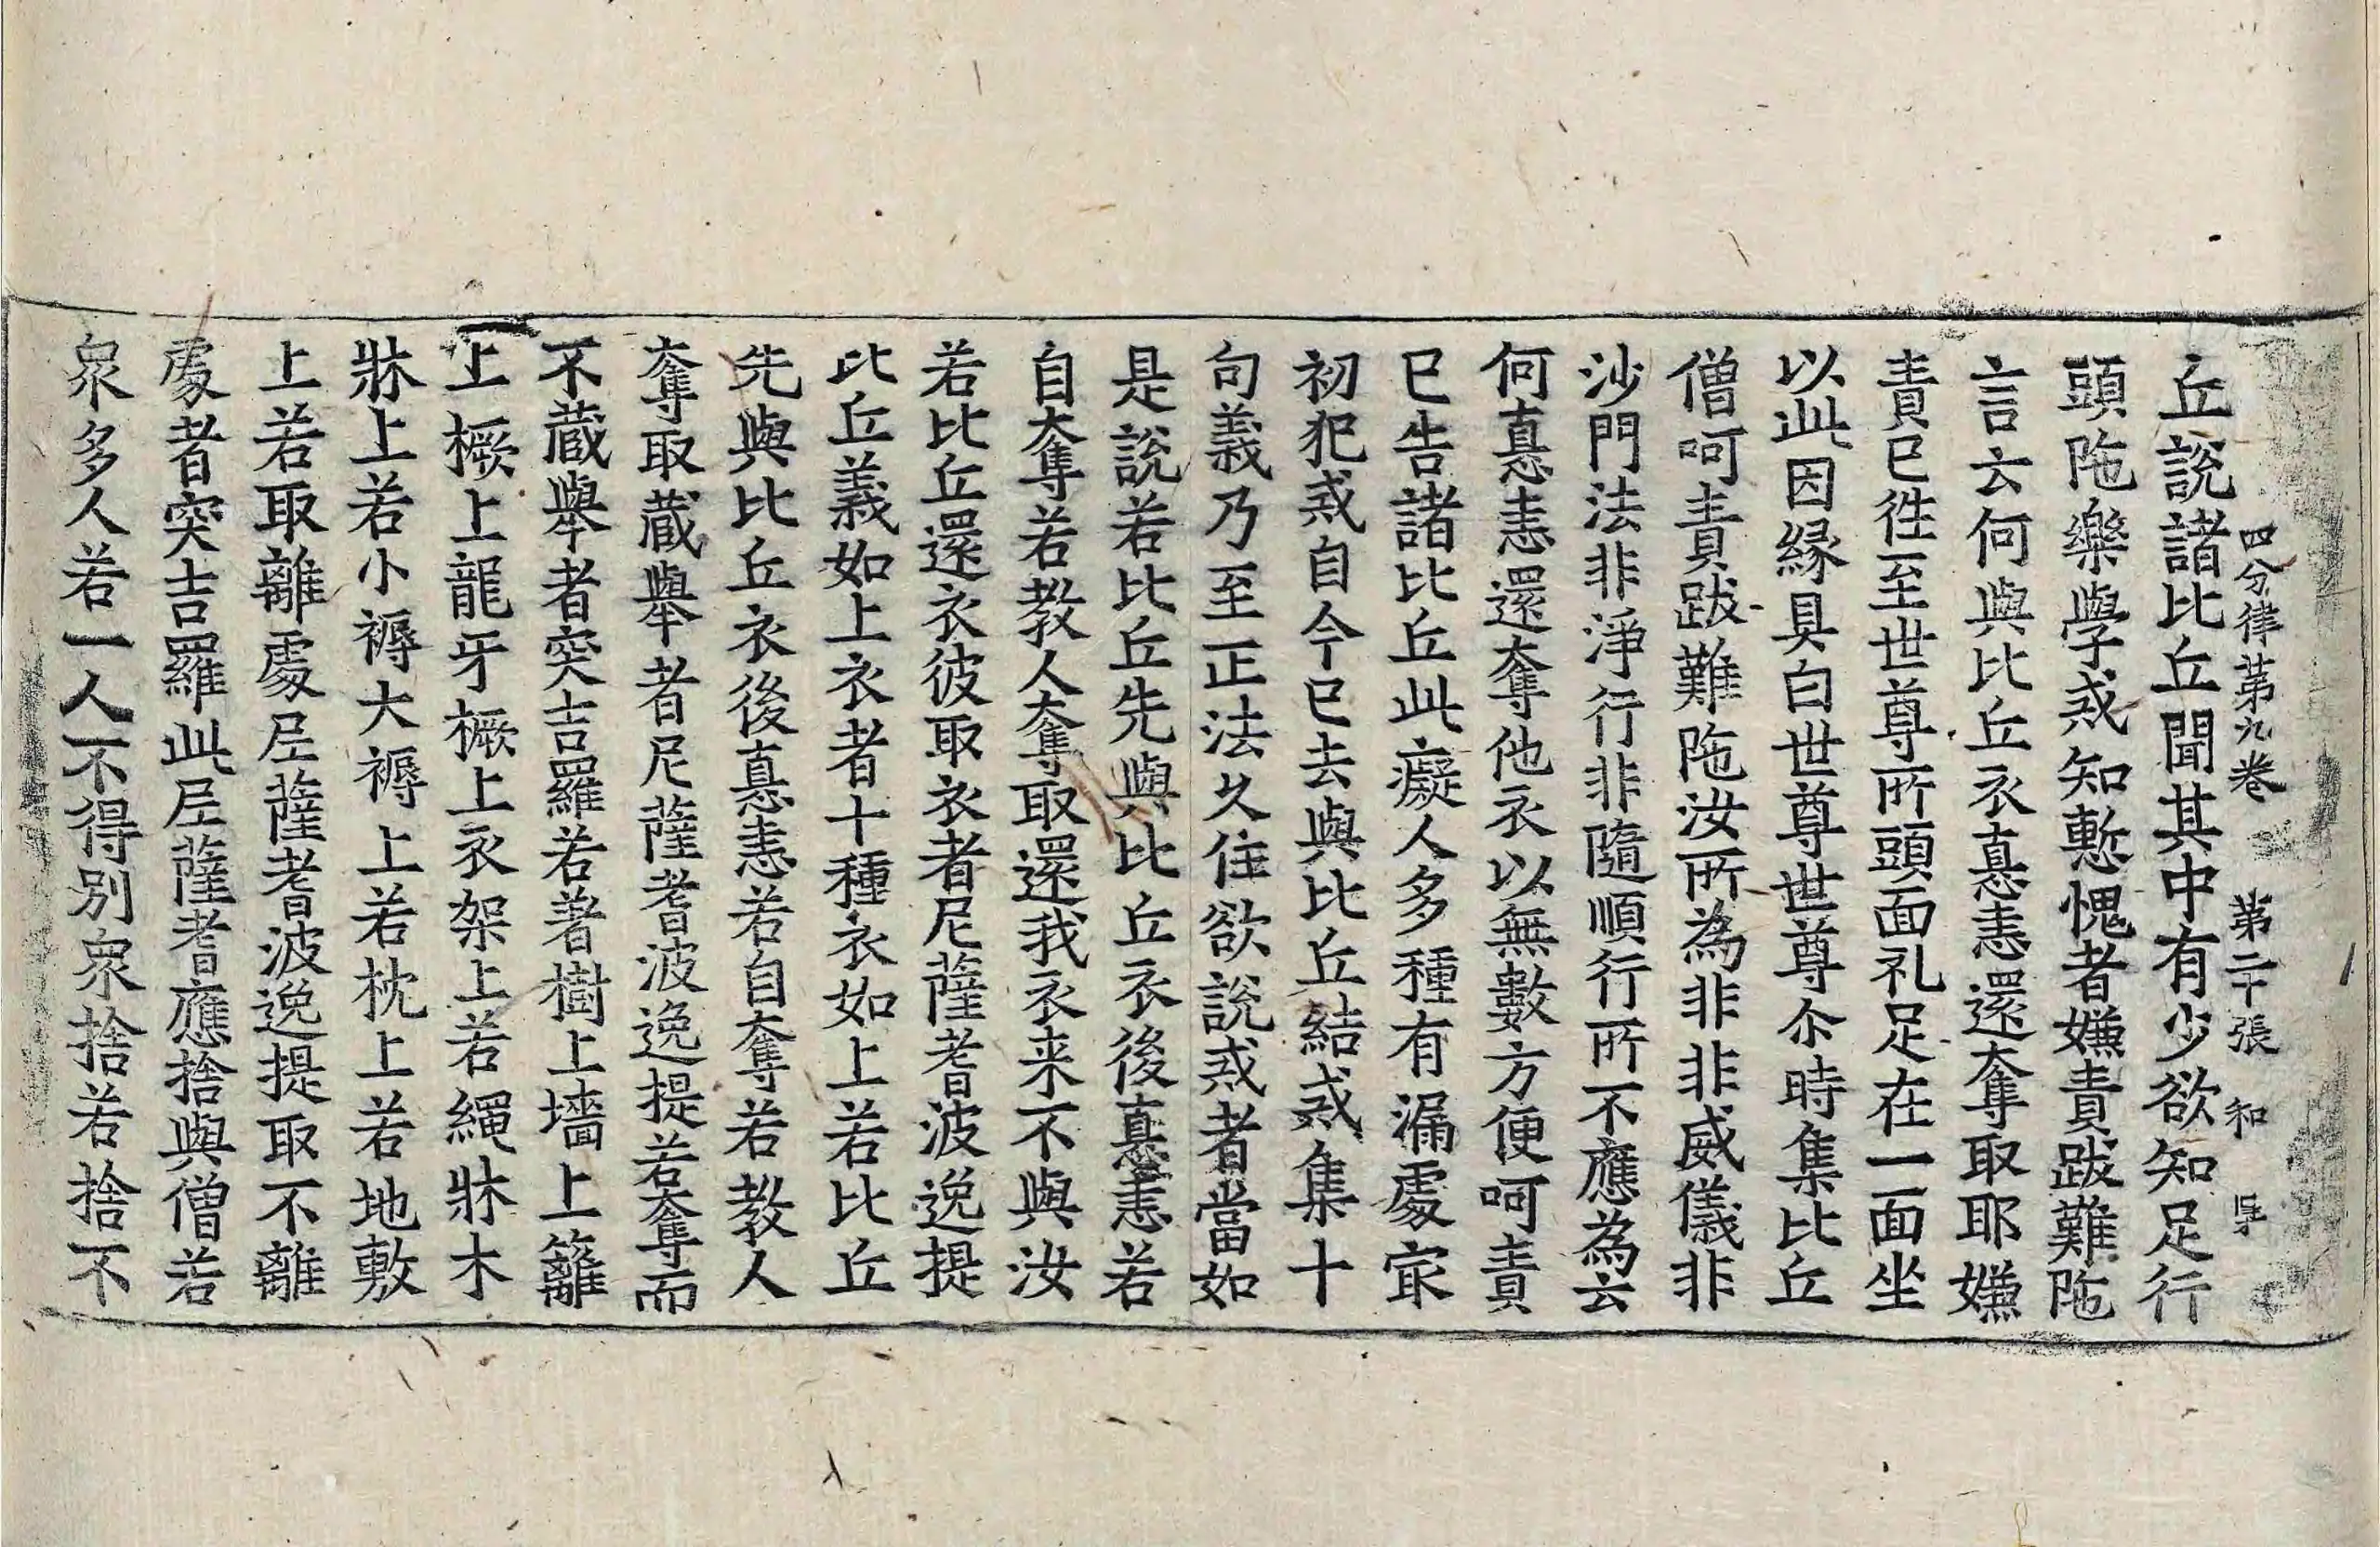 四分律苐九卷 第二十張 和
丘說諸比丘聞其中有少欲知足行
頭陁樂學戒知慙愧者嫌責跋難陁
言云何與比丘衣瞋恚還奪取耶嫌
責已徃至世尊所頭面礼足在一面坐
以此因縁具白世尊世尊尒時集比丘
僧呵責跋難陁汝所為非非威儀非
沙門法非淨行非隨順行所不應為云
何瞋恚還奪他衣以無數方便呵責
已告諸比丘此癡人多種有漏處㝡
初犯戒自今已去與比丘結戒集十
句義乃至正法久住欲說戒者當如
是說若比丘先與比丘衣後瞋恚若
自奪若教人奪取還我衣来不與汝
若比丘還衣彼取衣者尼薩耆波逸提
比丘義如上衣者十種衣如上若比丘
先與比丘衣後瞋恚若自奪若教人
奪取蔵舉者尼薩耆波逸提若奪而
不蔵舉者突吉羅若著樹上墻上籬
上橛上龍牙橛上衣架上若繩牀木
牀上若小褥大褥上若枕上若地敷
上若取離處尼薩耆波逸提取不離
處者突吉羅此尼薩耆應捨與僧若
衆多人若一人不得別衆捨若捨不